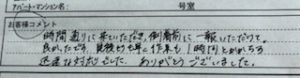 アパート・マンション名 号室
お客様コメント
時間通りに来ていただき、到着前に一報いただけて
良かったです。見積りも早く作業も1時間とかからず
迅速な対応でした。ありがとうございました。